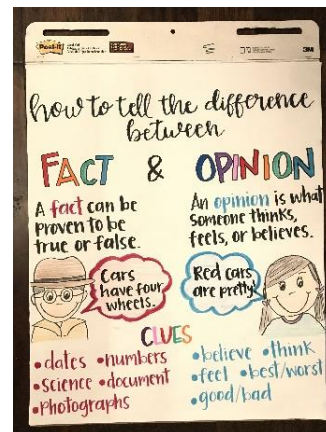 Post-it
3M
how to tell the difference
between
FACT & OPINION
A fact can be
proven to be
true or false.
An opinion is what
someone thinks,
feels, or believes.
Cars
have four
wheels.
Red cars
are pretty!
CLUES
•dates •numbers
•science •document
•photographs
•believe •think
•feel •best/worst
•good/bad